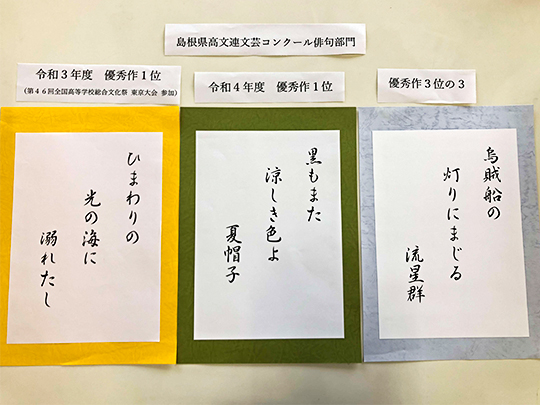 島根県高文連文芸コンクール俳句部門
令和3年度 優秀作1位
(第46回全国高等学校総合文化祭 東京大会 参加)
ひまわりの
光の海に
溺れたし
令和4年度 優秀作1位
黒もまた
涼しき色よ
夏帽子
優秀作3位の3
烏賊船の
灯りにまじる
流星群